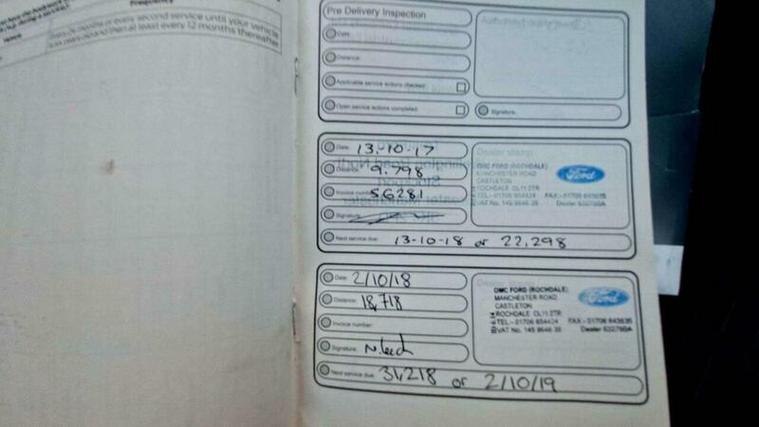 Frequency
months or every second service until your vehicle
and then at least every 12 months thereafter
Pre Delivery Inspection
Date:
Distance:
Applicable service actions checked:
Open service actions completed:
Signature:
Date: 13-10-17
Distance: 9.798
Invoice number: 56281
Signature:
Next service due: 13-10-18 or 22,298
Dealer stamp
OMC FORD (ROCHDALE)
MANCHESTER ROAD
CASTLETON
ROCHDALE OL11 2TR
Ford
Date: 2/10/18
Distance: 18,718
Invoice number:
Signature:
Next service due: 31,218 or 2/10/19
OMC FORD (ROCHDALE)
MANCHESTER ROAD
CASTLETON
ROCHDALE OL11 2TR
TEL - 01706 654434 FAX - 01706 643635
VAT No. 145 8646 35
Ford